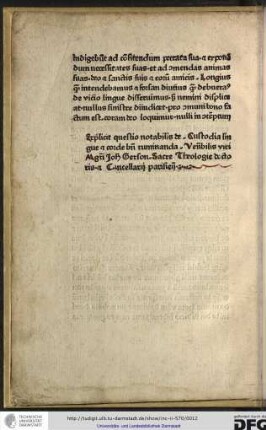 Indigebūt ad cōfitendum peccata sua ⁊ exponē
dum necessitates suas et ad cōmendās animas
suas deo ⁊ sanctis suis ⁊ eorū amicis. Longius
q̄ intendebamus ⁊ forsan diutius q̄ debuera⁹
de vicio lingue disseruimus. ꝙ nemini displice
at nullus sinistre diiudicet. pro cōmuni bono fa
ctum est. coram deo loquimur. nulli in cōtēptum
Explicit questio notabilis de Custodia lin
gue ⁊ corde bn̄ ruminanda. Ven̄bilis viri
Mgr̄i Joh̄ Gerson. Sacre Theologie docto
ris ⁊ Cancellarij parisieñ.
TECHNISCHE
UNIVERSITÄT
DARMSTADT
http://tudigit.ulb.tu-darmstadt.de/show/inc-iv-570/0012
Universitäts- und Landesbibliothek Darmstadt
DFG